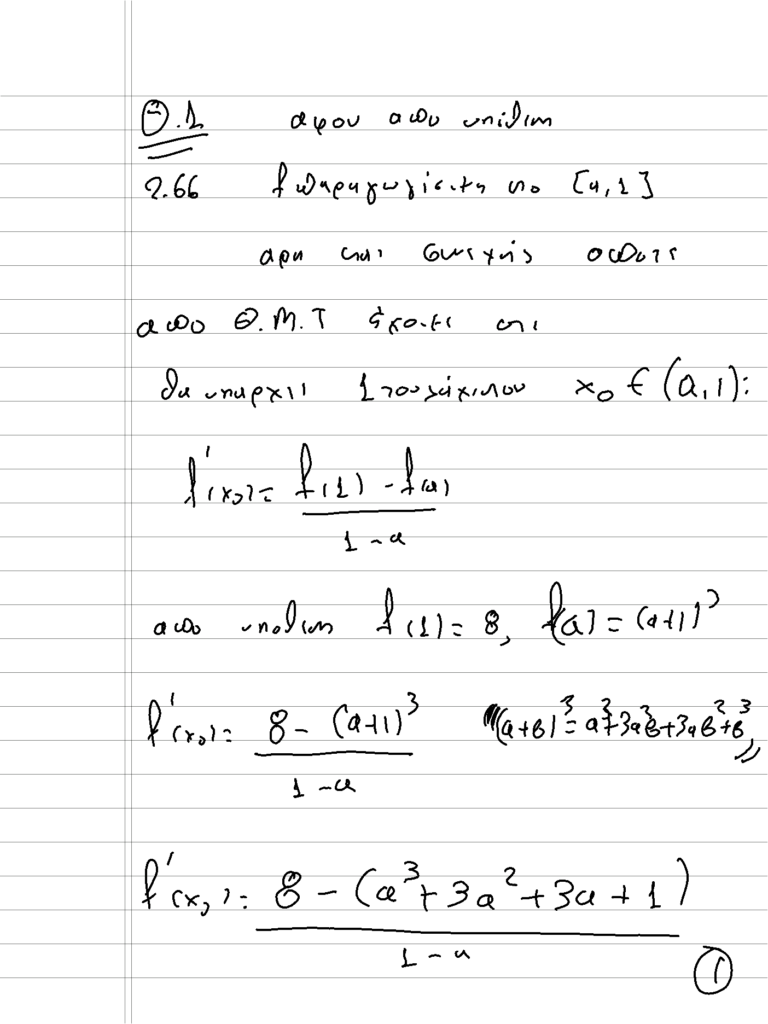 Θ.1 αφου απο υποθεση
2.66 f παραγωγισιμη στο [α,1]
αρα και συνεχής οποτε
απο Θ.Μ.Τ έχουμε οτι
θα υπαρχει 1 τουλάχιστον x₀ ∈ (α,1):
f'(x₀) = f(1) - f(α)
1 - α
απο υποθεση f(1) = 8, f(α) = (α+1)³
f'(x₀) = 8 - (α+1)³ (α+β)³ = α³+3α²β+3αβ²+β³
1 - α
f'(x₀) = 8 - (α³ + 3α² + 3α + 1)
1 - α
1